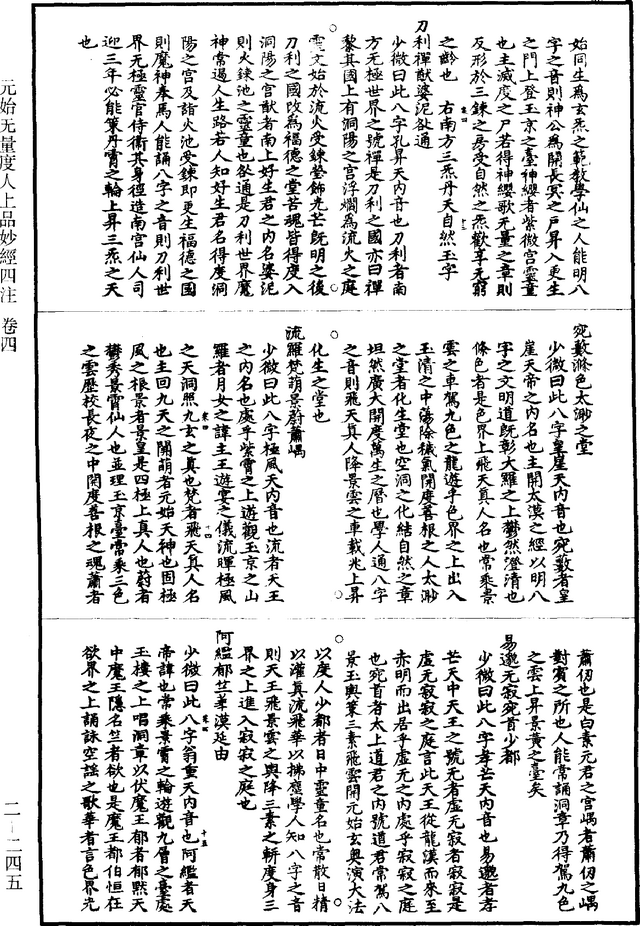 始同生爲玄炁之範教學仙之人能明八
字之音則神公爲開長冥之戶昇入更生
之門上登玉京之臺神纓者紫微宮靈童
也主滅度之尸若得神纓歌无量之章則
反形於三鍊之房受自然之炁歡享无窮
之齡也 右南方三炁丹天自然玉字
刀利禪猷婆泥咎通
少微曰此八字孔昇天內音也刀利者南
方无極世界之號禪是刀利之國亦曰禪
黎其國上有洞陽之宮浮爓爲流火之庭
靈文始於流火受鍊瑩飾光芒旣明之後
刀利之國改爲福德之堂苦魂皆得度入
洞陽之宮猷者南上好生君之內名婆泥
則火鍊池之靈童也咎通是刀利世界魔
神常遏人生路若人知好生君名得度洞
陽之宮及詣火池受鍊即更生福德之國
則魔神奉馬人能誦八字之音則刀利世
界无極靈官侍衛其身徑造南宮仙人司
迎三年必能策丹霄之輪上昇三炁之天
也
宛藪滌色太渺之堂
少微曰此八字皇崖天內音也宛藪者皇
崖天帝之內名也主開太漠之經以明八
字之文明道旣彰大羅之上鬱然澄清也
滌色者是色界上飛天真人名也常乘景
雲之車駕九色之龍遊乎色界之上出入
玉清之中蕩除穢氣開度善根之人太渺
之堂者化生堂也空洞之化結自然之章
坦然廣大開度萬生之厝也學人通八字
之音則飛天真人降景雲之車載兆上昇
化生之堂也
流羅梵萌景蔚蕭嵎
少微曰此八字極風天內音也流者天王
之內名也處乎紫霄之上遊觀玉京之山
羅者月女之諱主王遊宴之儀流暉極風
之天洞照九玄之真也梵者飛天真人名
也主回九天之關萌者元始天神也固極
風之根景者景皇是四極上真人也蔚者
鬱秀景霄仙人也並理玉京臺常乘三色
之雲歷校長夜之中開度善根之魂蕭者
蕭仞也是白素元君之宮嵎者蕭仞之嵎
對賓之所也人能常誦洞章乃得駕九色
之雲上昇景黃之臺矣
易邈无寂宛首少都
少微曰此八字孝芒天內音也易邈者孝
芒天中天王之號无者虛无寂者寂寂是
虛无寂寂之庭言此天王從龍漢而來至
赤明而出居乎虛无之內處乎寂寂之庭
也宛首者太上道君之內號道君常駕八
景玉輿策三素飛雲開元始玄奧演大法
以度人少都者日中靈童名也常散日精
以灌真流飛華以拂塵學人知八字之音
則天王飛景雲之輿降三素之軿度身三
界之上進入寂寂之庭也
阿䍲郁竺華漠延由
少微曰此八字翁重天內音也阿䍲者天
帝諱也常乘景霄之輪遊觀九層之臺處
玉樓之上唱洞章以伏魔王郁者郁默天
中魔王隱名竺者欲也是魔王都伯恒在
欲界之上誦詠空謠之歌華者言色界光
元始无量度人上品妙經四注 卷四
二-二四五